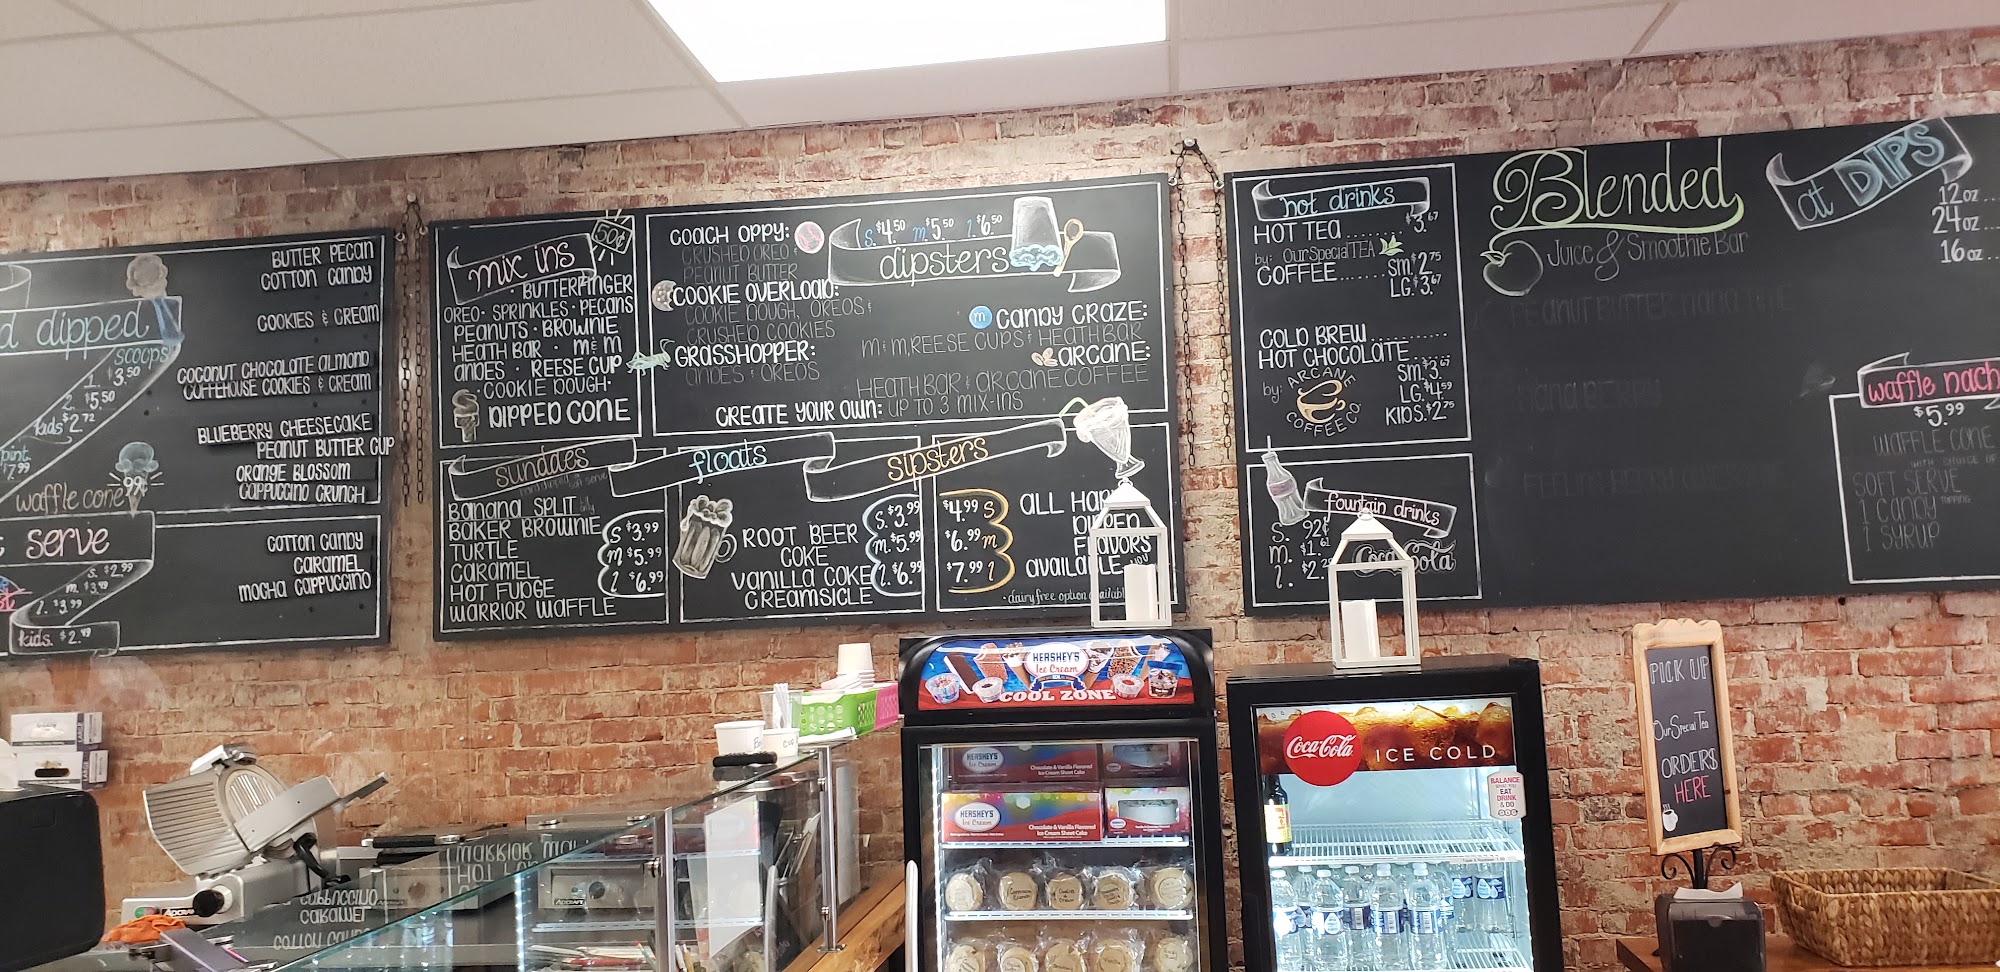 BUTTER PECAN
COTTON CANDY
COOKIES & CREAM
COCONUT CHOCOLATE ALMOND
COFFEEHOUSE COOKIES & CREAM
BLUEBERRY CHEESECAKE
PEANUT BUTTER CUP
ORANGE BLOSSOM
CAPPUCCINO CRUNCH
dipped
scoops
1. $3.50
2. $5.50
kids $2.72
pint.
$7.99
waffle cone
99¢
serve
S. $2.99
m. $3.49
l. $3.99
kids. $2.49
COTTON CANDY
CARAMEL
MOCHA CAPPUCCINO
mix ins
50¢
BUTTERFINGER
OREO · SPRINKLES · PECANS
PEANUTS · BROWNIE
HEATH BAR · M & M
ANDES · REESE CUP
· COOKIE DOUGH ·
DIPPED CONE
COACH OPPY:
CRUSHED OREO &
PEANUT BUTTER
COOKIE OVERLOAD:
COOKIE DOUGH, OREOS &
CRUSHED COOKIES
GRASSHOPPER:
ANDES & OREOS
S. $4.50 m. $5.50 l. $6.50
dipsters
m CANDY CRAZE:
M & M, REESE CUPS & HEATH BAR
ARCANE:
HEATH BAR & ARCANE COFFEE
CREATE YOUR OWN: UP TO 3 MIX-INS
sundaes
BANANA SPLIT
BAKER BROWNIE
TURTLE
CARAMEL
HOT FUDGE
WARRIOR WAFFLE
S $3.99
m $5.99
l $6.99
floats
ROOT BEER
COKE
VANILLA COKE
CREAMSICLE
S. $3.99
m. $5.99
l. $6.99
sipsters
$4.99 S
$6.99 m
$7.99 l
ALL
DIPPED
FLAVORS
AVAILABLE
· dairy free option
hot drinks
HOT TEA ........ $3.67
by: Our Special TEA
COFFEE ...... SM. $2.75
LG. $3.67
COLD BREW ..........
HOT CHOCOLATE .....
SM. $3.67
LG. $4.59
KIDS. $2.75
by:
ARCANE
COFFEE CO.
fountain drinks
S. 92¢
m.
l.
Coca Cola
Blended
Juice & Smoothie Bar
at DIPS
12 oz ...
24 oz ...
16 oz ...
PEANUT BUTTER NANA
NANA BERRY
waffle nach
$5.99
WAFFLE CONE
SOFT SERVE
1 CANDY TOPPING
1 SYRUP
HERSHEY'S
Ice Cream
COOL ZONE
HERSHEY'S
Ice Cream
Chocolate & Vanilla Flavored
Ice Cream Sheet Cake
HERSHEY'S
Ice Cream
Chocolate & Vanilla Flavored
Ice Cream Sheet Cake
Coca-Cola
ICE COLD
BALANCE
WHAT YOU
EAT
DRINK
& DO
PICK UP
Our Special Tea
ORDERS
HERE